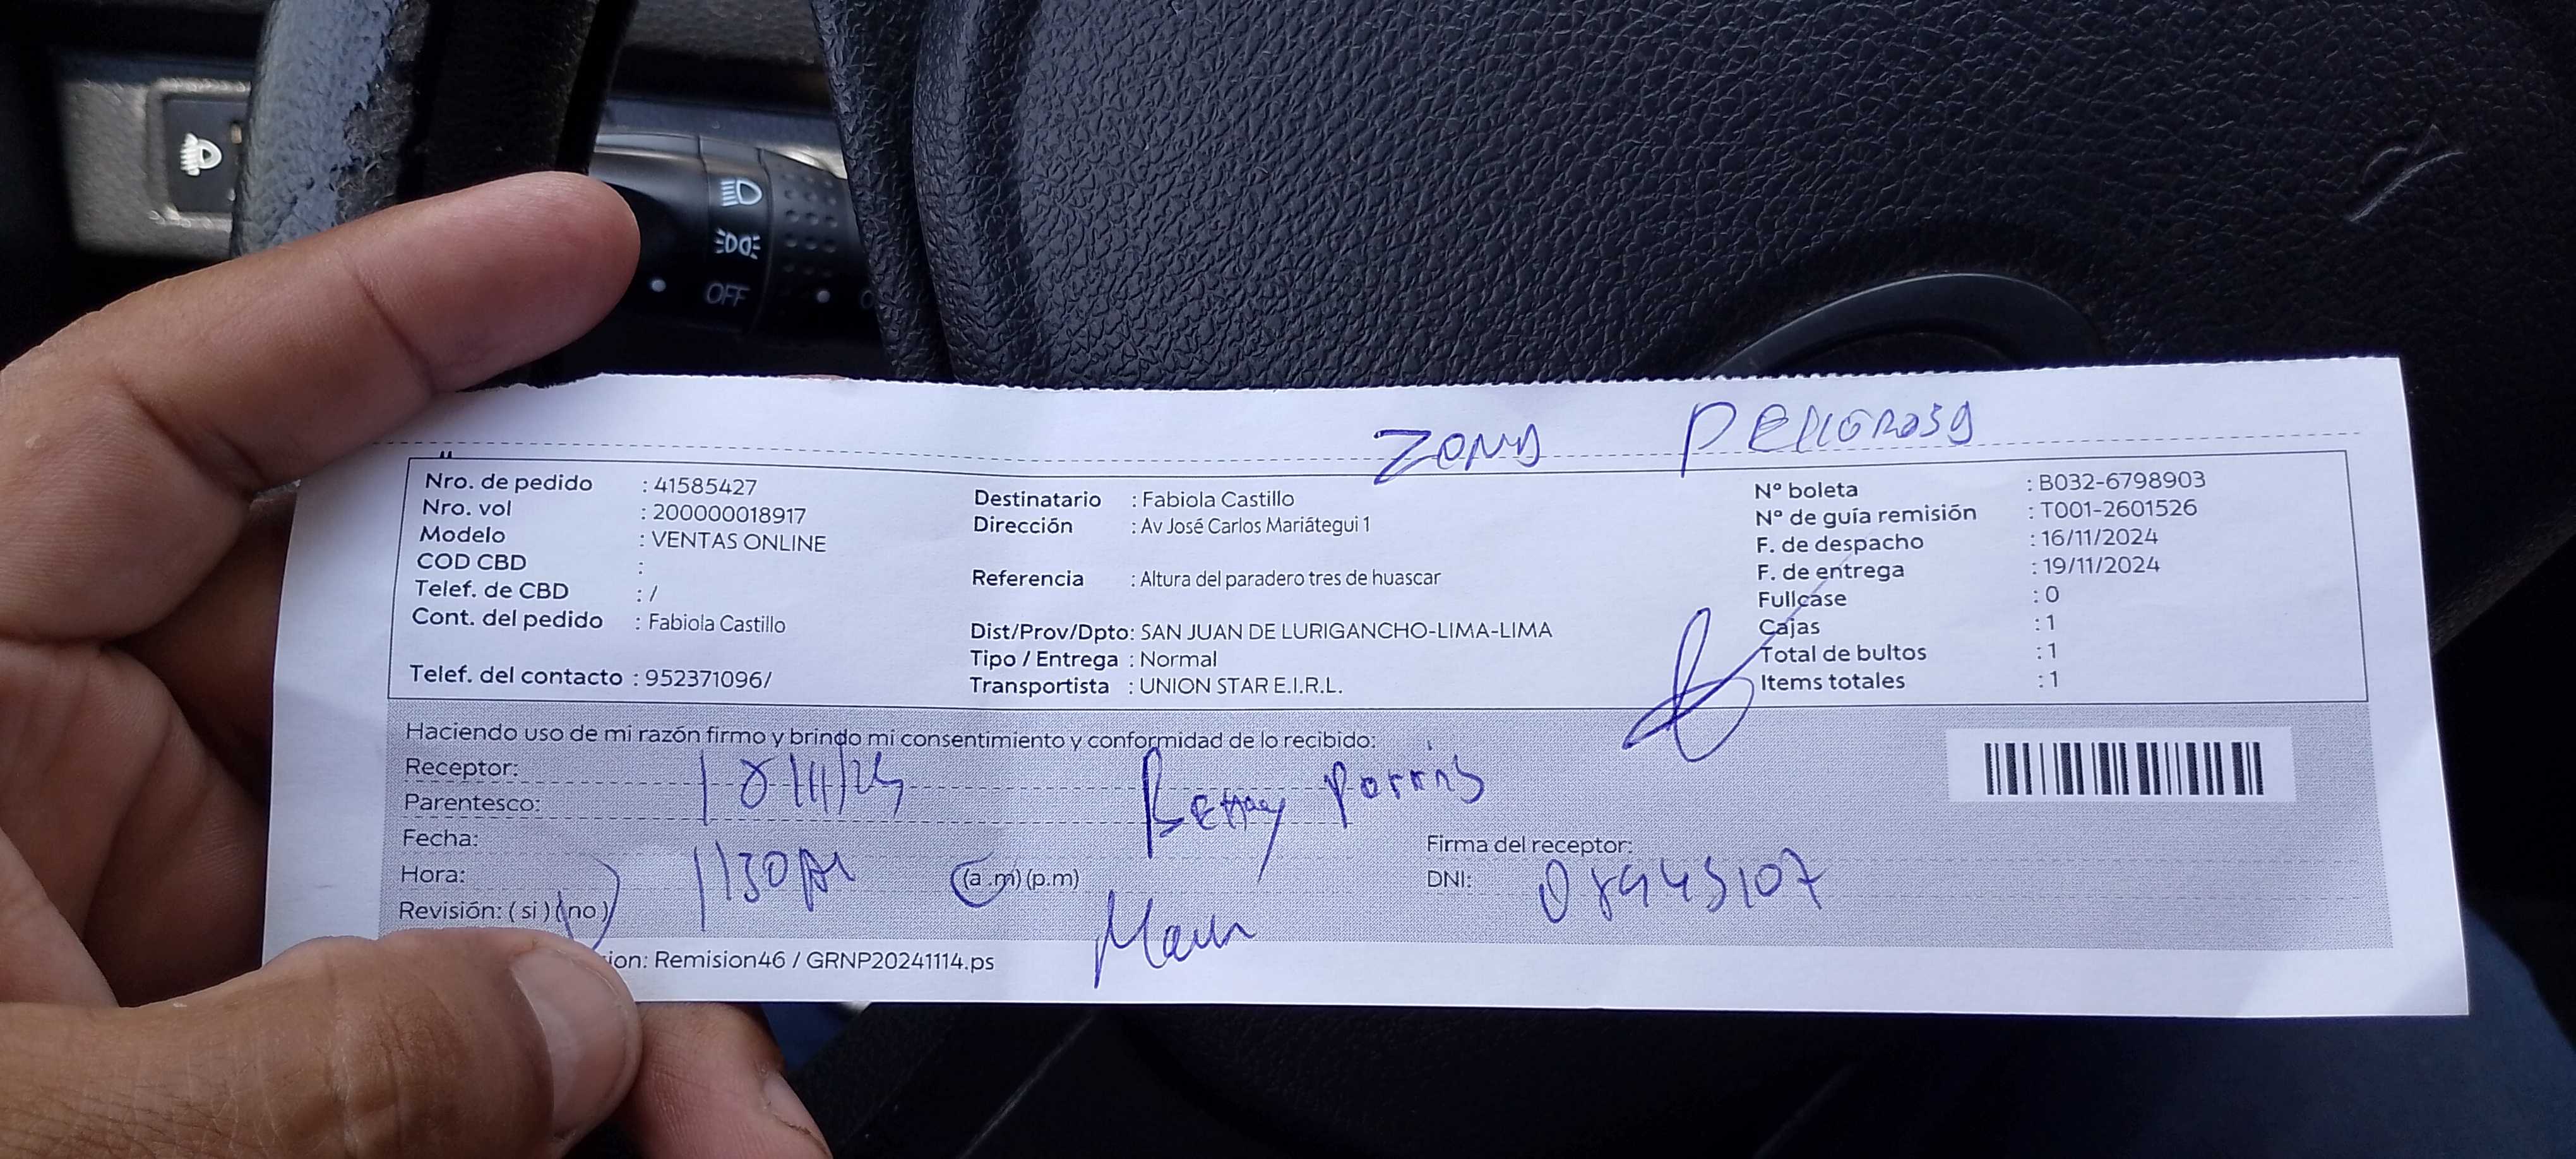 OFF
ZONA PELIGROSA
Nro. de pedido : 41585427
Nro. vol : 200000018917
Modelo : VENTAS ONLINE
COD CBD :
Telef. de CBD : /
Cont. del pedido : Fabiola Castillo
Telef. del contacto : 952371096/
Destinatario : Fabiola Castillo
Dirección : Av José Carlos Mariátegui 1
Referencia : Altura del paradero tres de huascar
Dist/Prov/Dpto: SAN JUAN DE LURIGANCHO-LIMA-LIMA
Tipo / Entrega : Normal
Transportista : UNION STAR E.I.R.L.
N° boleta : B032-6798903
N° de guía remisión : T001-2601526
F. de despacho : 16/11/2024
F. de entrega : 19/11/2024
Fullcase : 0
Cajas : 1
Total de bultos : 1
Items totales : 1
Haciendo uso de mi razón firmo y brindo mi consentimiento y conformidad de lo recibido:
Receptor:
Parentesco: 18/11/24
Fecha:
Hora: 1130 AM (a .m) (p.m)
Revisión: ( si ) ( no )
Firma del receptor:
DNI: 08945107
ion: Remision46 / GRNP20241114.ps